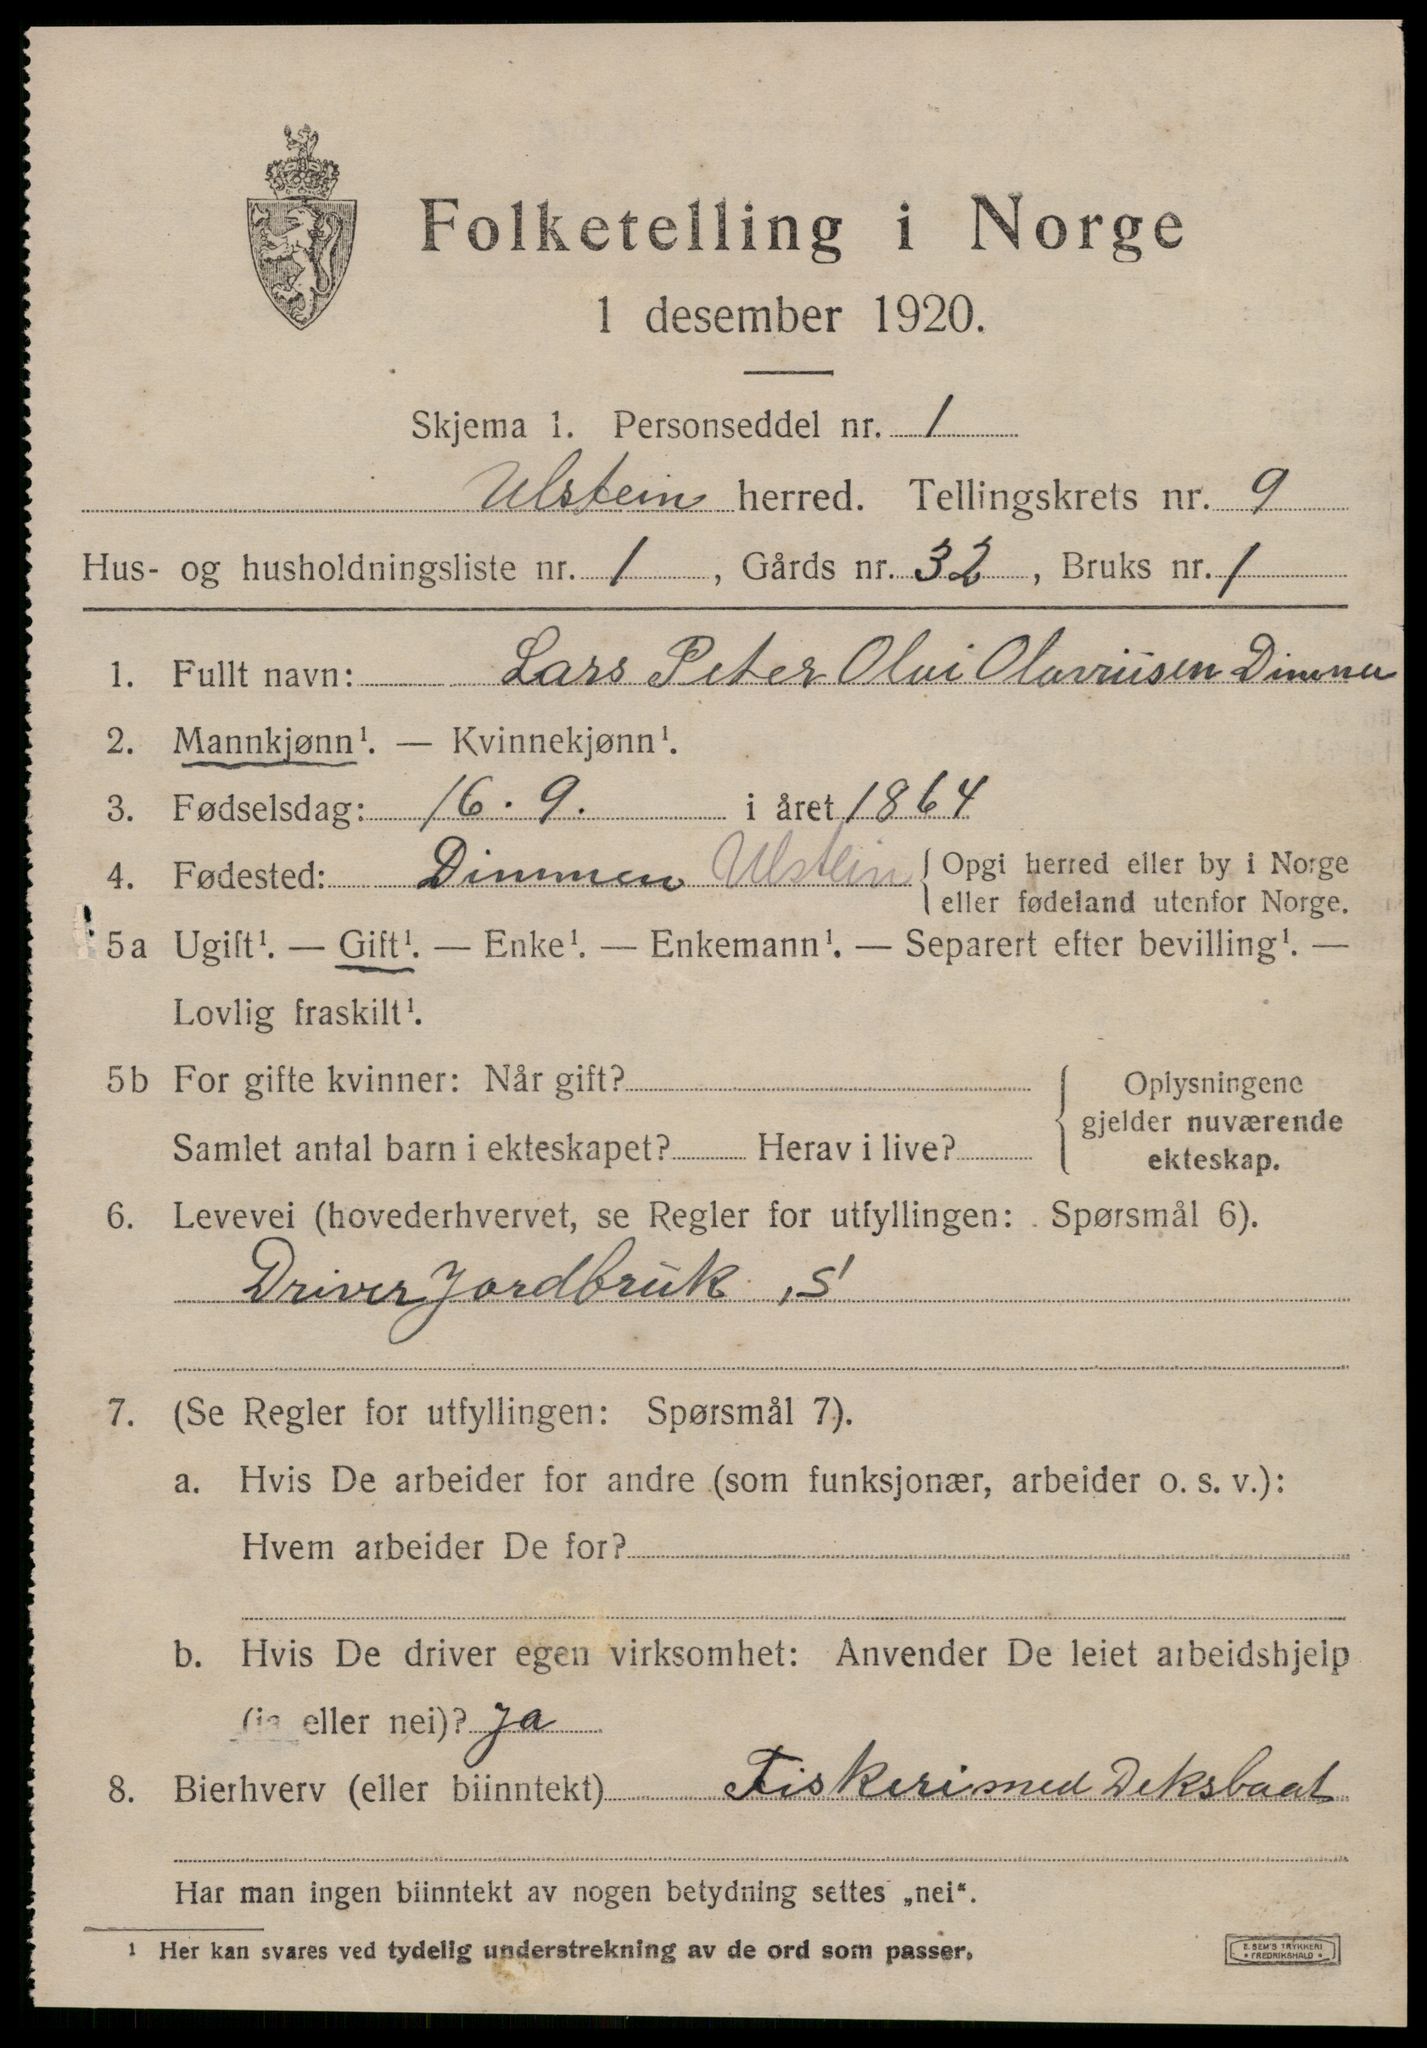 Folketelling i Norge
1 desember 1920.
Skjema 1. Personseddel nr. 1
Ulstein herred. Tellingskrets nr. 9
Hus- og husholdningsliste nr. 1, Gårds nr. 32, Bruks nr. 1
1. Fullt navn: Lars Peter Olai Olavriisen Dimmen
2. Mannkjønn¹. — Kvinnekjønn¹.
3. Fødselsdag: 16.9. i året 1864
4. Fødested: Dimmen Ulstein { Opgi herred eller by i Norge
eller fødeland utenfor Norge.
5a Ugift¹. — Gift¹. — Enke¹. — Enkemann¹. — Separert efter bevilling¹. —
Lovlig fraskilt¹.
5b For gifte kvinner: Når gift?
Samlet antal barn i ekteskapet? Herav i live?
Oplysningene
gjelder nuværende
ekteskap.
6. Levevei (hovederhvervet, se Regler for utfyllingen: Spørsmål 6).
Driver Jordbruk, S
7. (Se Regler for utfyllingen: Spørsmål 7).
a. Hvis De arbeider for andre (som funksjonær, arbeider o. s. v.):
Hvem arbeider De for?
b. Hvis De driver egen virksomhet: Anvender De leiet arbeidshjelp
(ja eller nei)? Ja
8. Bierhverv (eller biinntekt) Fiskeri med Deksbaat
Har man ingen biinntekt av nogen betydning settes „nei“.
1 Her kan svares ved tydelig understrekning av de ord som passer.
E. SEM'S TRYKKERI
* FREDRIKSHALD *